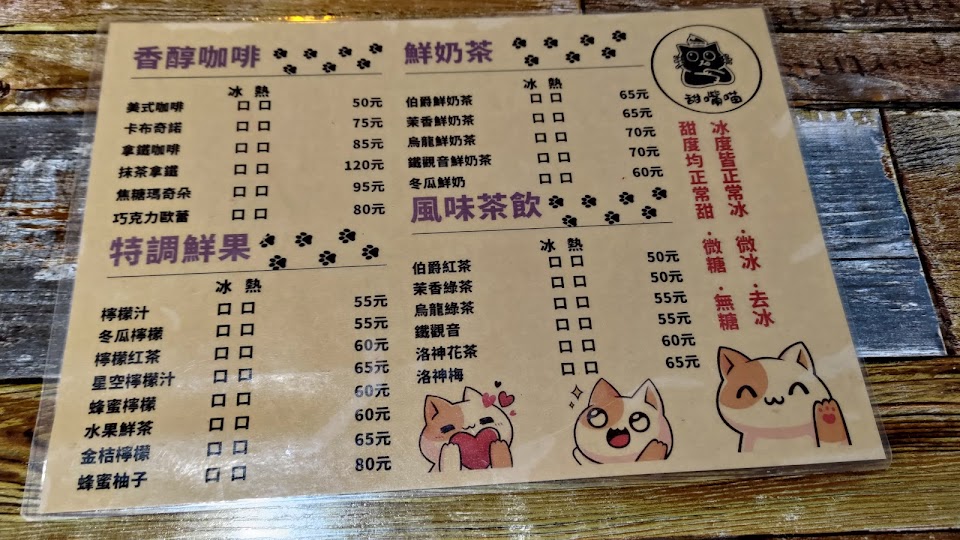 香醇咖啡
冰 熱
美式咖啡 口 口 50元
卡布奇諾 口 口 75元
拿鐵咖啡 口 口 85元
抹茶拿鐵 口 口 120元
焦糖瑪奇朵 口 口 95元
巧克力歐蕾 口 口 80元
特調鮮果
冰 熱
檸檬汁 口 口 55元
冬瓜檸檬 口 口 55元
檸檬紅茶 口 口 60元
星空檸檬汁 口 口 65元
蜂蜜檸檬 口 口 60元
水果鮮茶 口 口 60元
金桔檸檬 口 口 65元
蜂蜜柚子 口 口 80元
鮮奶茶
冰 熱
伯爵鮮奶茶 口 口 65元
茉香鮮奶茶 口 口 65元
烏龍鮮奶茶 口 口 70元
鐵觀音鮮奶茶 口 口 70元
冬瓜鮮奶 口 口 60元
風味茶飲
冰 熱
伯爵紅茶 口 口 50元
茉香綠茶 口 口 50元
烏龍綠茶 口 口 55元
鐵觀音 口 口 55元
洛神花茶 口 口 60元
洛神梅 口 口 65元
甜嘴喵
冰度皆正常冰．微冰．去冰
甜度均正常甜．微糖．無糖